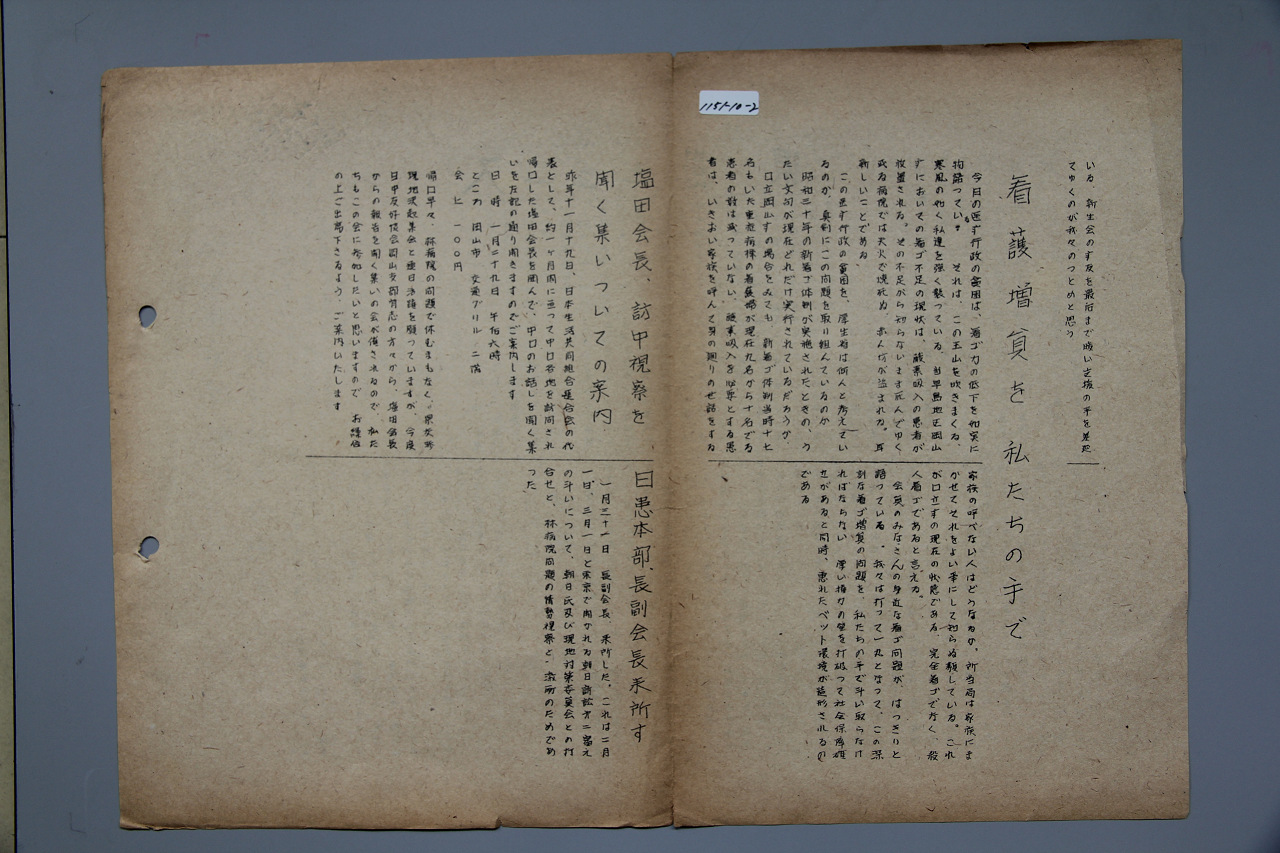 1151-10-2
いる 新生会の
てゆくのが我々のつとめと思う
看護増員を私たちの手で
それは、この玉山を吹きまくる、
寒風の如く私達を強く襲っている、
放置される。その不足がら知らないまま死んでゆく
或る病院では火火で焼死ぬ、赤ん坊が盗まれる。耳
新しいことである、
厚生省は何んと考えてい
るのか、真剣にこの問題を取り組んでいるのか
昭和三十年の新看ゴ体制が実施されたときの、う
たい文句が現在どれだけ実行されているだろうか、
新看ゴ体制当時十七
名もいた重症病棟の看護婦が現在九名から十名である
患者の数は減っていない、酸素吸入を必要とする患
者は、いきおい家族を呼んで身の廻りの世話をする
家族の呼べない人はどうなるか、所当局は家族にま
かせてそれをよい事にして知らぬ顔している。これ
の現在の状態である、完全看ゴでなく、殺
人看ゴであると言える。
会員のみなさんの身近な看ゴ問題が、はっきりと
語っている。我々は打って一丸となって、この深
刻な看ゴ増員の問題を、私たちの手で斗い取らなけ
ればならない 厚い権力の壁を打破って社会保障確
立があると同時、恵れたベット環境が造形されるの
である
塩田会長、訪中視察を
聞く集いついての案内
昨年十一月十九日、日本生活共同組合連合会の代
表として、約一ヶ月間に亘って中口各地を訪問され
帰口した塩田会長を囲んで、中口のお話しを聞く集
いを左記の通り開きますのでご案内します
日 時 一月二十九日 午后六時
ところ 岡山市 交通ブリル 二階
会 ヒ 一〇〇円
帰口早々、林病院の問題で休むまもなく、
日中友好協会岡山支部有志の方々から、塩田会長
からの報告を聞く集いの会が催されるので 私た
ちもこの会に参加したいと思いますので お繰合
の上ご出席下さるよう、ご案内いたします
日患本部、長副会長来所す
一月三十一日 長副会長、来所した、これは二月
一日、三月一日と東京で開かれる朝日訴訟
の斗いについて、朝日氏及び現地対策委員会との打
合せと、林病院問題の情勢視察と、
った